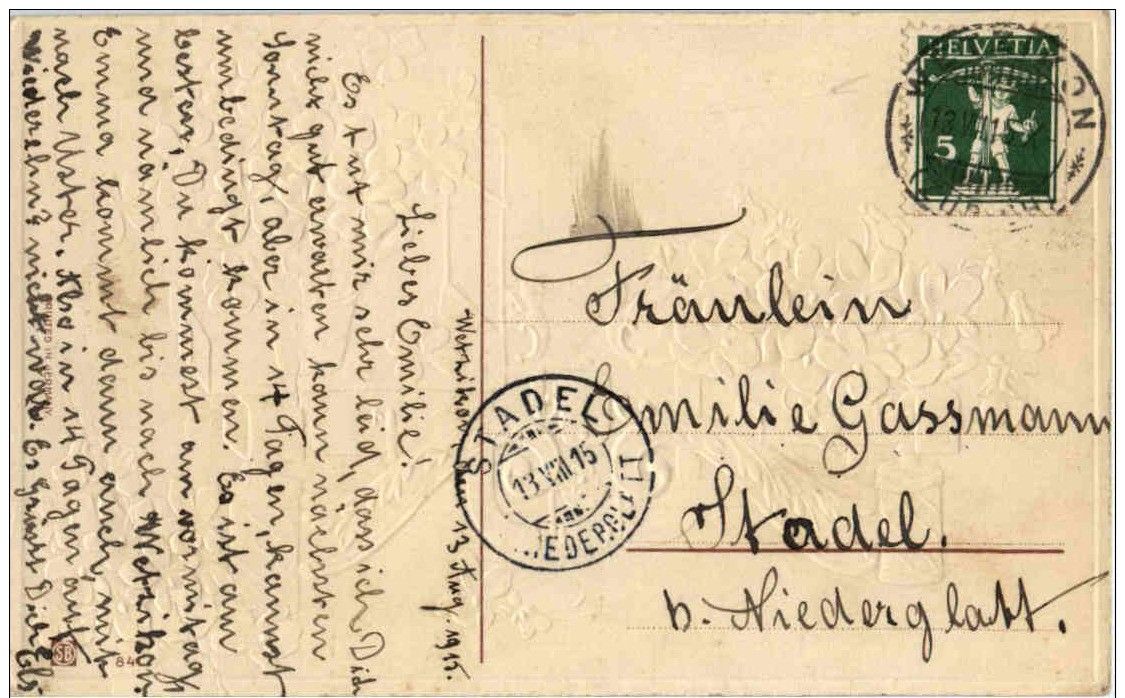 Wetzikon, den 13 Aug. 1915.
Liebes Emilie!
Es tut mir sehr leid, dass ich Dich
nicht gut erwarten kann nächsten
Sonntag, aber in 14 Tagen, kannst
unbedingt kommen. Es ist am
besten, Du kommest am vormittag
und nämlich bis nach Wetzikon.
Emma kommt dann auch, mit
nach Uster. Also in 14 Tagen auf
Wiedersehn, nicht wahr. Es Grüsst Dich Els
HELVETIA
5
13 VIII 15
Fräulein
Emilie Gassmann
Stadel.
b. Niederglatt.
STADEL
13 VIII 15
(NIEDERGLATT)
PRINTED IN GERMANY
SB
84